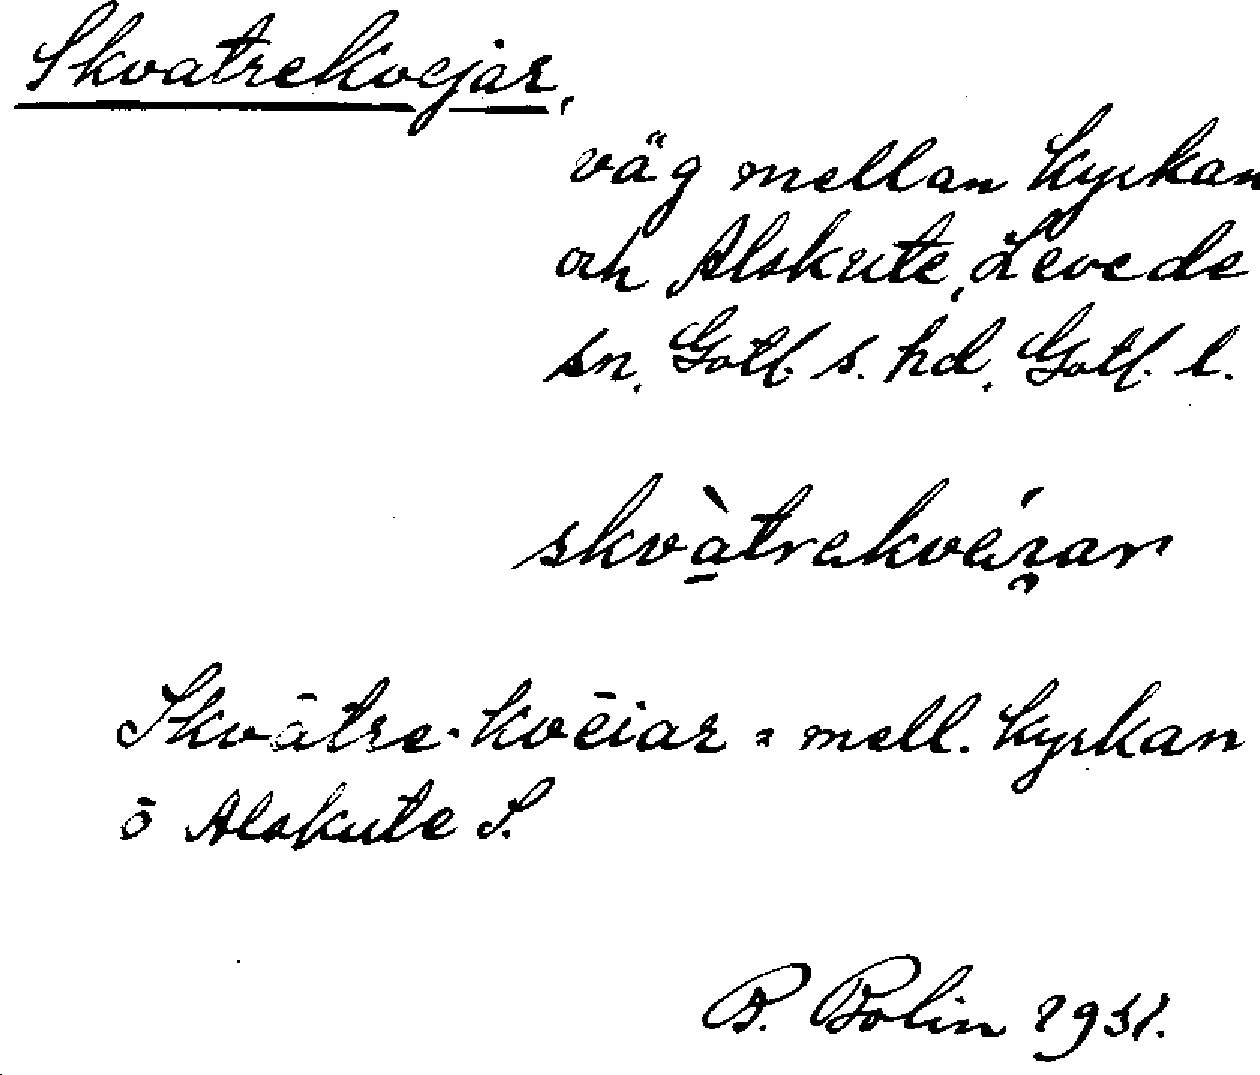 Skvatrekvejar,
väg mellan kyrkan
och Alskute, Levede
sn, Gotl. s. hd, Gotl. l.
Skvātre-kvēiar = mell. kyrkan
ō Alskute S.
B. Bolin 1931.